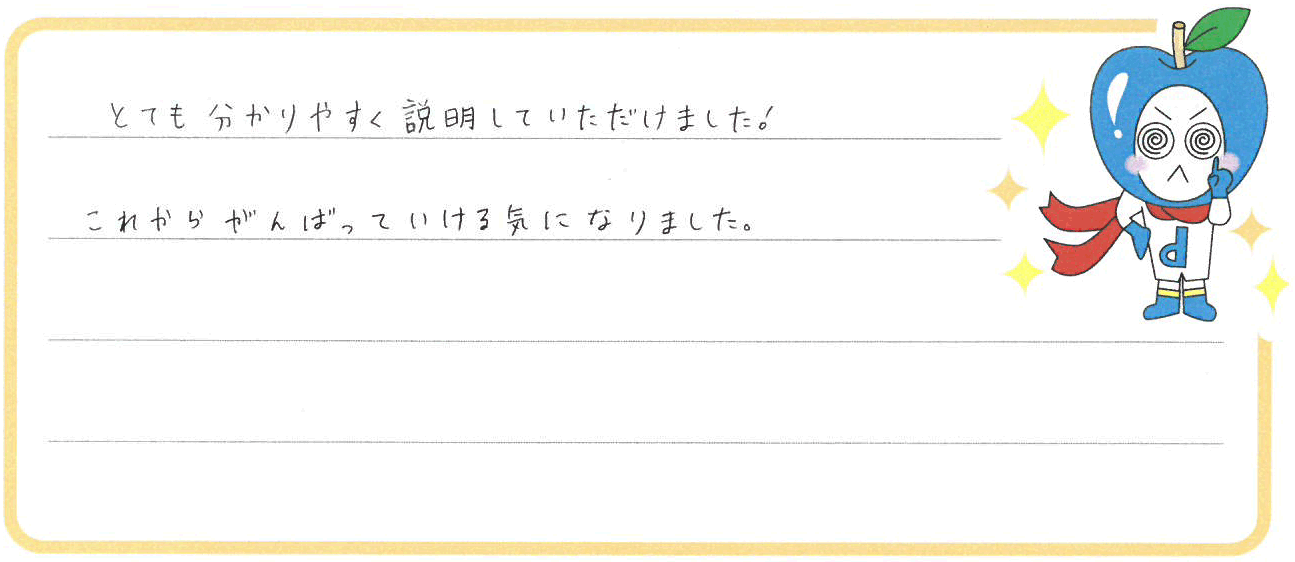 とても分かりやすく説明していただけました!
これからがんばっていける気になりました。